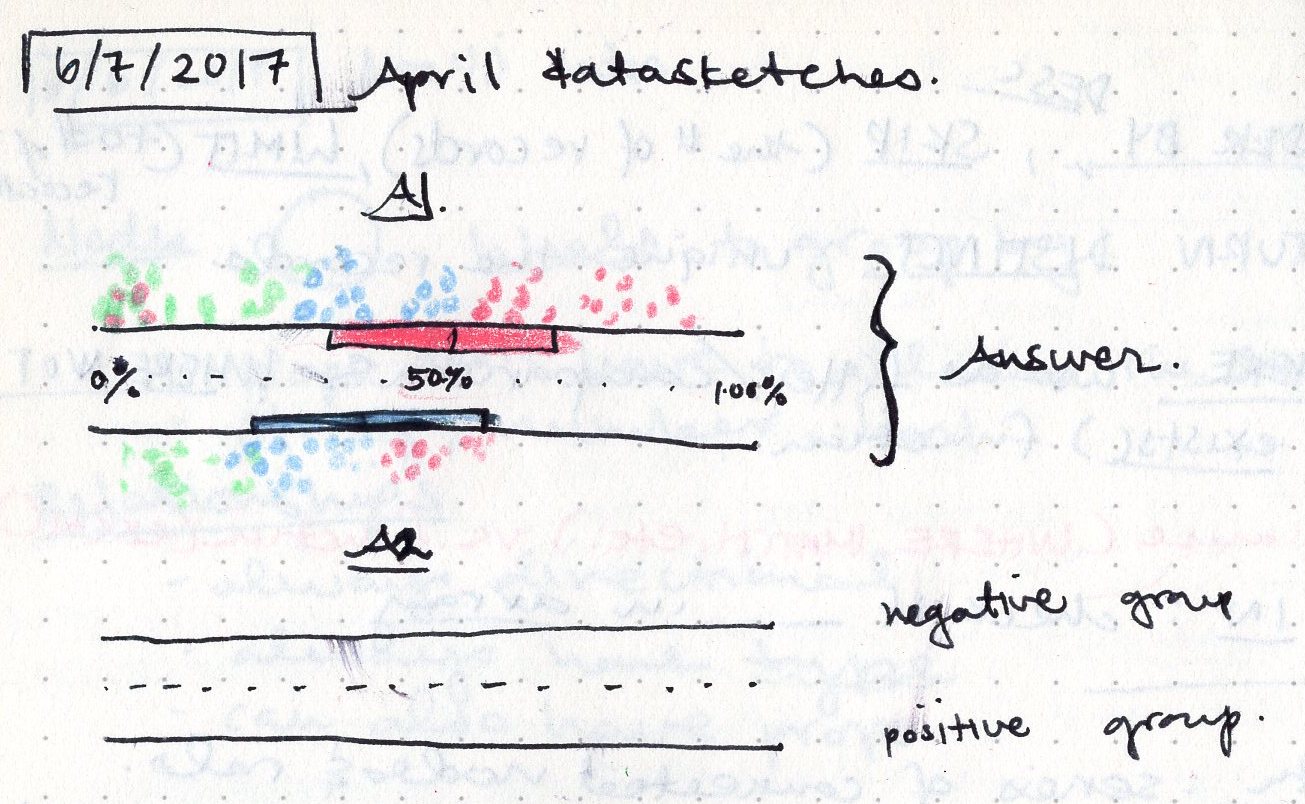 6/7/2017 April datasketches.
A1.
0% 50% 100%
Answer.
A2
negative group
positive group.